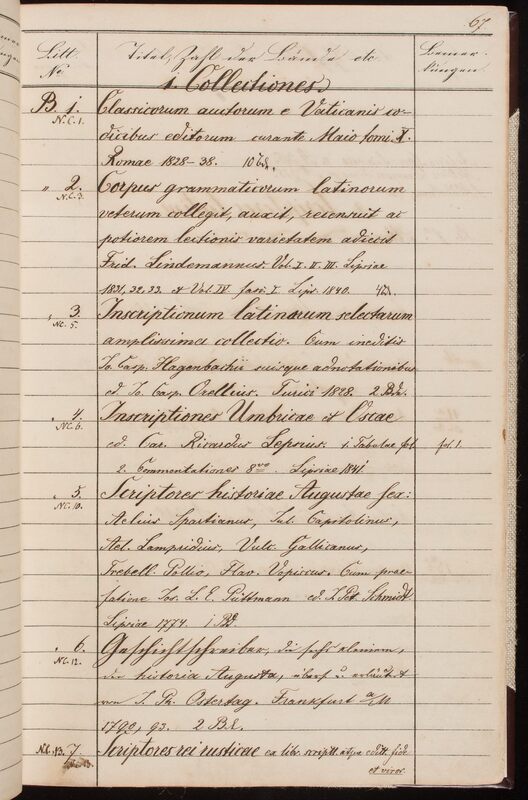 67.
Litt. Titel, Zahl der Bände etc. Bemer-
No kungen.
1. Collectiones.
B 1. Classicorum auctorum e Vaticanis co-
N.C.1. dicibus editorum curante Maio tomi X.
Romae 1828-38. 10 Bd.
" 2. Corpus grammaticorum latinorum
N.C.3. veterum collegit, auxit, recensuit ac
potiorem lectionis varietatem adiecit
Frid. Lindemannus. Vol. I. II. III. Lipsiae
1831, 32, 33. et Vol. IV fasc. I. Lips. 1840. 4Bd.
" 3. Inscriptionum latinarum selectarum
NC. 5. amplissima collectio. Cum ineditis
Io. Casp. Hagenbachii suisque adnotationibus
ed. Io. Casp. Orellius. Turici 1828. 2 Bde.
" 4. Inscriptiones Umbricae et Oscae
NC. 6. ed. Car. Ricardus Lepsius. 1. Tabulae fol fol 1.
2. Commentationes 8vo Lipsiae 1841
" 5. Scriptores historiae Augustae sex:
NC. 10. Aelius Spartianus, Jul. Capitolinus,
Ael. Lampridius, Vulc. Gallicanus,
Trebell. Pollio, Flav. Vopiscus. Cum prae-
fatione Ios. L. E. Püttmann ed. I. Pet. Schmidt
Lipsiae 1774. 1 Bd.
" 6. Geschichtschreiber, die sechs kleinern,
NC. 12. der historia Augusta, übers. u. erläutert
von I. Ph. Ostertag. Frankfurt a/M
1790, 93. 2 Bd.
N.C. 13. 7. Scriptores rei rusticae ex libr. scriptt. atque editt. fide
et viror.